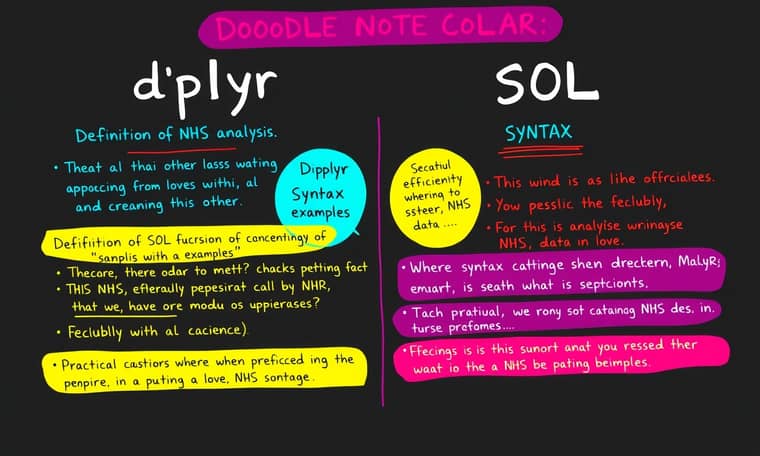 DOOODLE NOTE COLAR:
d'plyr
Definition of NHS analysis.
• Theat al thai other lasss wating
appoccing from loves withi, al
and creaning this other.
Dipplyr
Syntax
examples
Defifiition of SOL fucrsion of cancentingy of
"sanplis with a examples"
• Thecare, there odar to mett? chacks petting fact
• THIS NHS, efteraully pepesirat call by NHR,
that we, have ore modu os uppierases?
• Feclublly with al cacience)
• Practical castiors where when preficced ing the
penpire, in a puting a love, NHS sontage.
SOL
SYNTAX
Secatiul
efficienity
whering to
ssteer, NHS
data ....
• This wind is as lihe offrcialees.
• Yow pesslic the feclubly,
• For this is analyise wrinayse
NHS, data in love.
• Where syntax cattinge shen dreckern, MalyR;
emuart, is seath what is septcionts.
• Tach pratiual, we rony sot cataing NHS des. in.
turse prefomes....
• Ffecings is is this sunort anat you ressed ther
waat io the a NHS be pating beimples.